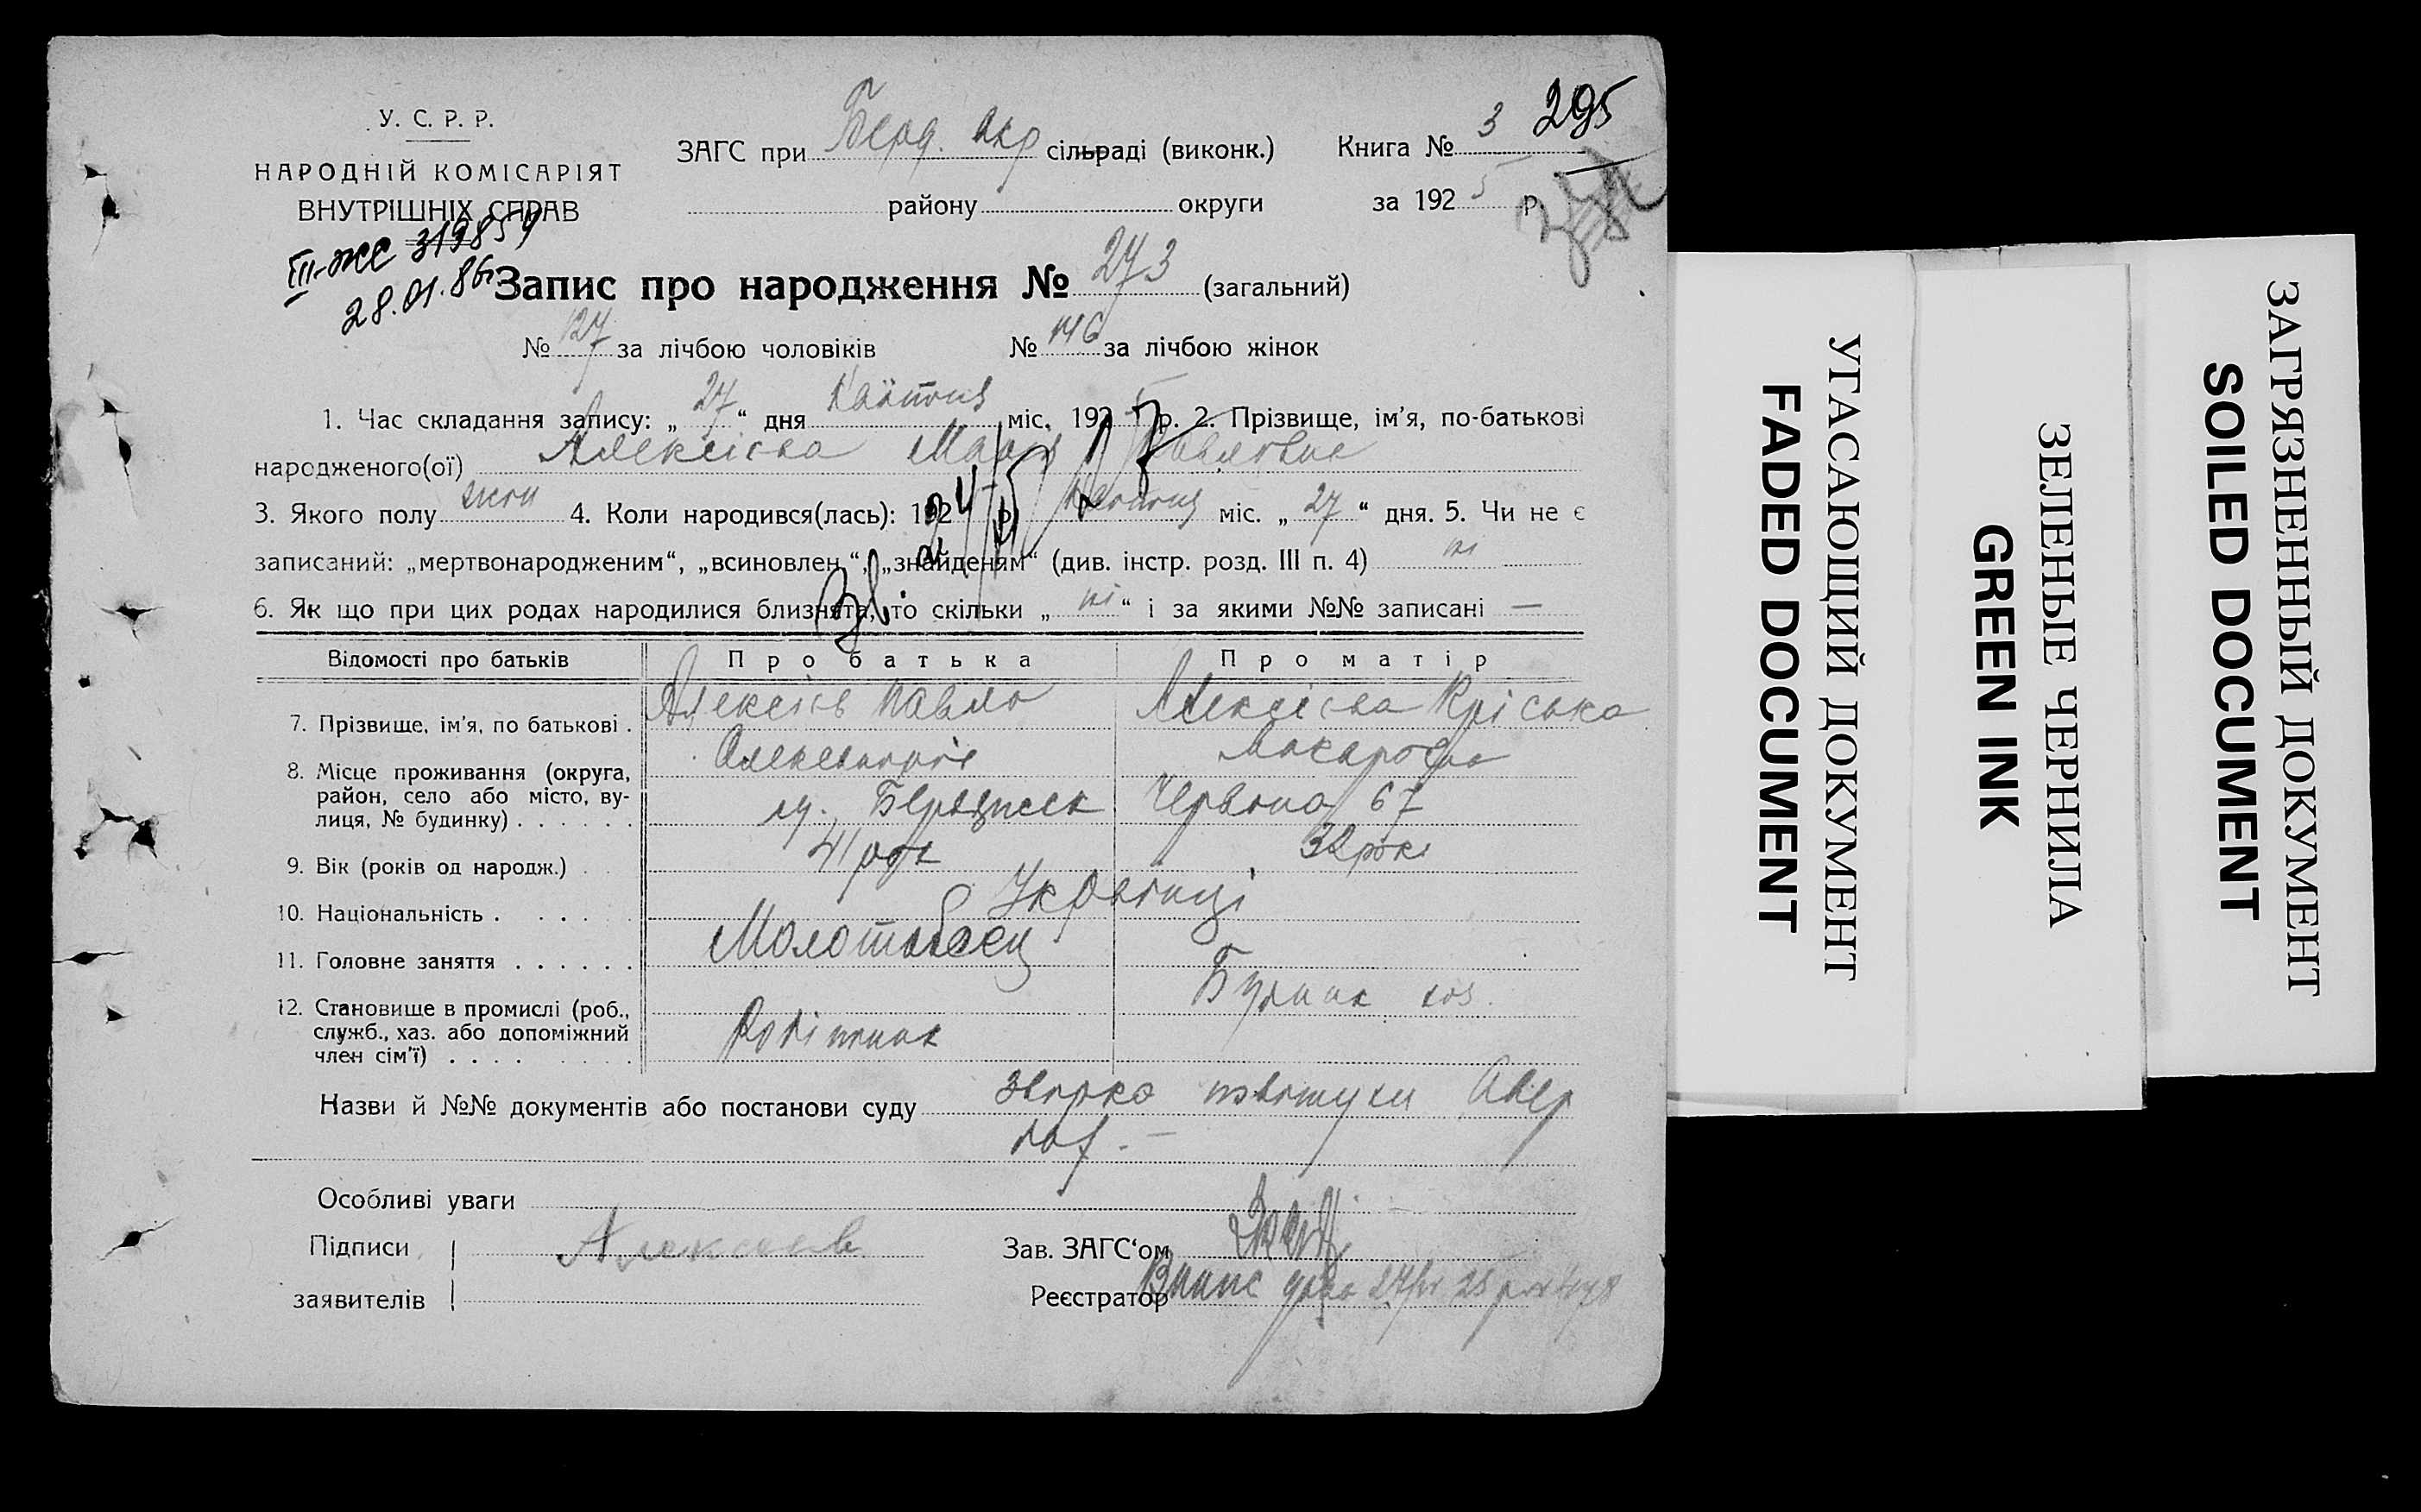 У. С. Р. Р.
НАРОДНІЙ КОМІСАРІЯТ
ВНУТРІШНІХ СПРАВ
III-ЖС 319859
28.01.86г
ЗАГС при Берд. Окр сільраді (виконк.) Книга № 3 295
району округи за 1925 р.
Запис про народження № 273 (загальний)
№ 127 за лічбою чоловіків № 146 за лічбою жінок
1. Час складання запису: „ 27 “ дня міс. 1925 р. 2. Прізвище, ім'я, по-батькові
народженого(ої) Алексієва Марія Павловна
3. Якого полу жін 4. Коли народився(лась): 192 р. міс. „ 27 “ дня. 5. Чи не є
записаний: „мертвонародженим“, „всиновлен.“, „знайденям“ (див. інстр. розд. III п. 4) ні
6. Як що при цих родах народилися близнята, то скільки „ ні “ і за якими №№ записані —
Відомості про батьків Про батька Про матір
7. Прізвище, ім'я, по батькові . Алексієв Павло Алексієва
8. Місце проживання (округа,
район, село або місто, ву-
лиця, № будинку) . . . . . . м. Бердичев Червона 67
9. Вік (років од народж.) . . 41 рок 32 рокі
10. Національність . . . . . Українці
11. Головне заняття . . . . . . Молотобоец
12. Становище в промислі (роб.,
служб., хаз. або допоміжний
член сім'ї) . . . . Робітник
Назви й №№ документів або постанови суду
Особливі уваги
Підписи Алексеев Зав. ЗАГС'ом
заявителів Реєстратор
УГАСАЮЩИЙ ДОКУМЕНТ
FADED DOCUMENT
ЗЕЛЕНЫЕ ЧЕРНИЛА
GREEN INK
ЗАГРЯЗНЕННЫЙ ДОКУМЕНТ
SOILED DOCUMENT